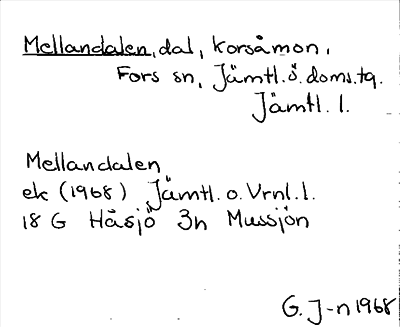 Mellandalen, dal, Korsåmon,
Fors sn, Jämtl. ö. doms. tg.
Jämtl. l.
Mellandalen
ek (1968) Jämtl. o. Vrnl. l.
18 G Håsjö 3h Mussjön
G. J-n 1968